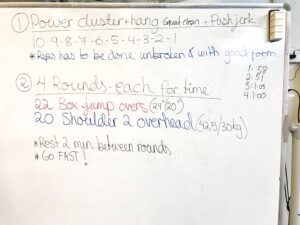 ① Power cluster + hang squat clean + Push jerk
10-9-8-7-6-5-4-3-2-1
*Reps has to be done unbroken & with good form.
② 4 Rounds - each for time:
22 Box jump overs (24"/20")
20 Shoulder 2 overhead (42,5/30kg)
*Rest 2 min between rounds
*GO FAST!
1: 58
2: 51
4: 1:00